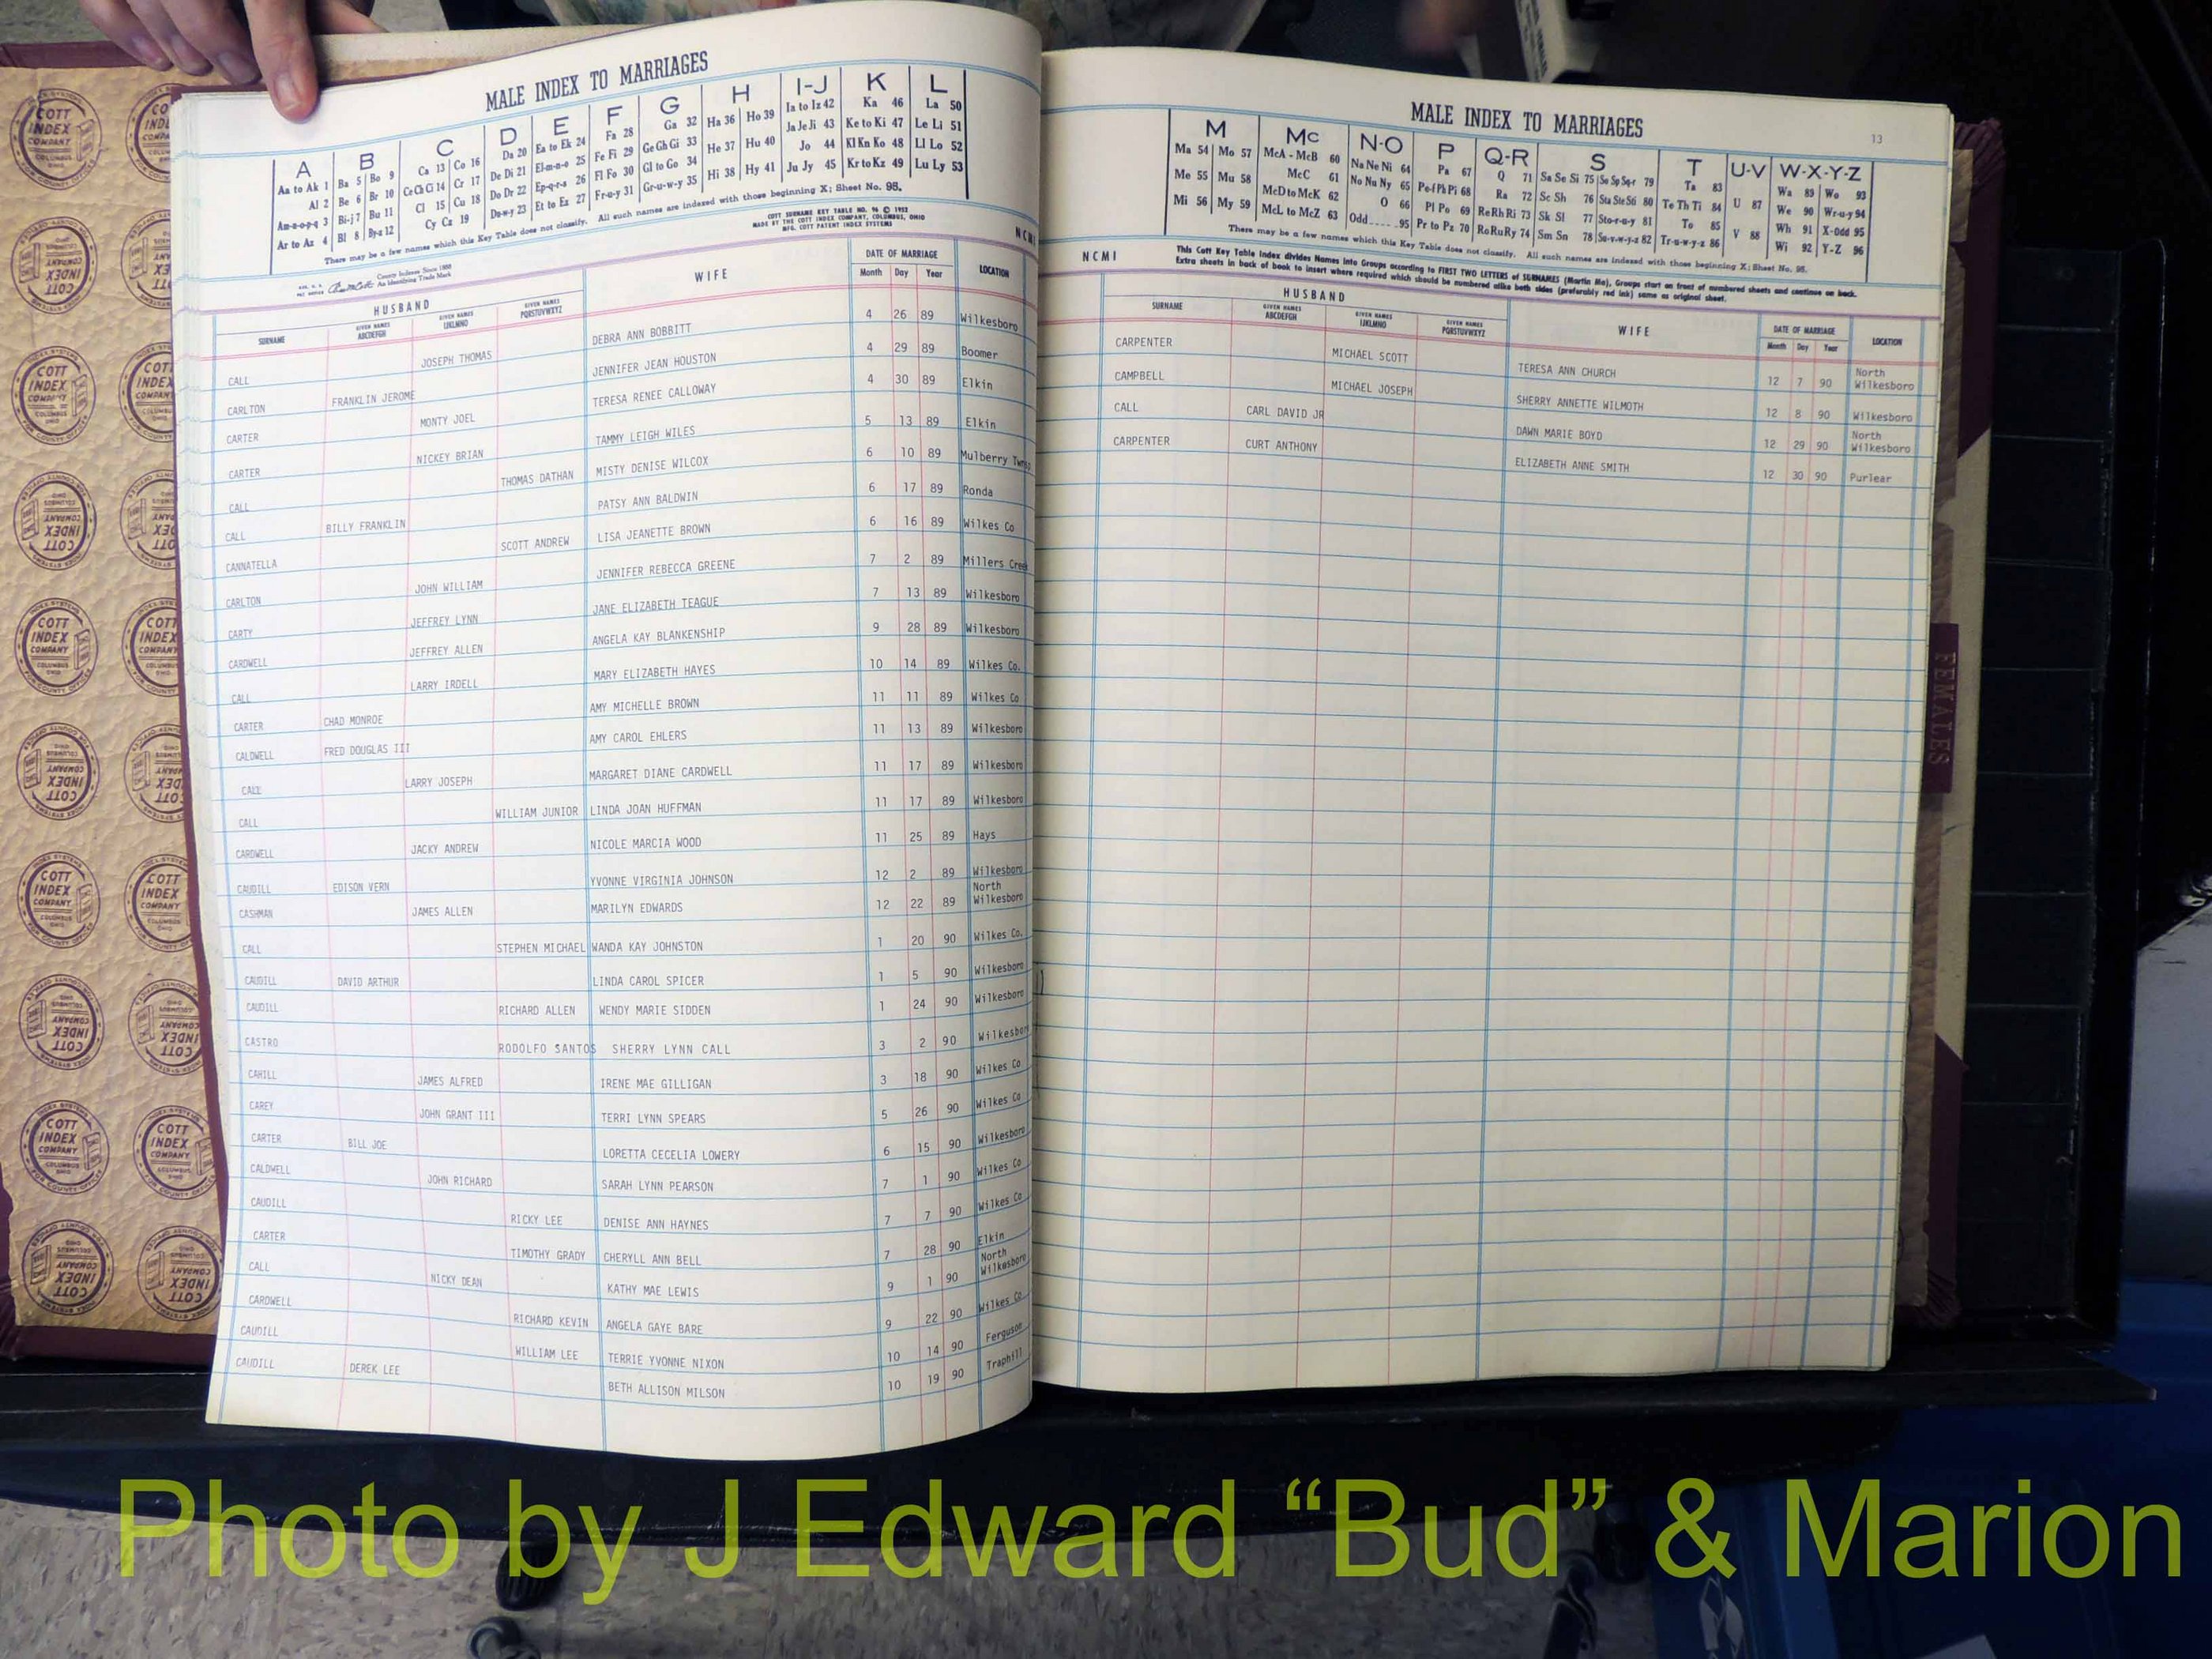 MALE INDEX TO MARRIAGES
A B C D E F G H I-J K L
Aa to Ak 1 Ba 5 Bo 9 Ca 13 Co 16 Da 20 Ea to Ek 24 Fa 28 Ga 32 Ha 36 Ho 39 Ia to Iz 42 Ka 46 La 50
Al 2 Be 6 Br 10 Ce Ch Ci 14 Cr 17 De Di 21 El-m-n-o 25 Fe Fi 29 Ge Gh Gi 33 He 37 Hu 40 Ja Je Ji 43 Ke to Ki 47 Le Li 51
Am-n-o-p-q 3 Bi-j 7 Bu 11 Cl 15 Cu 18 Do Dr 22 Ep-q-r-s 26 Fl Fo 30 Gl to Go 34 Hi 38 Hy 41 Jo 44 Kl Kn Ko 48 Ll Lo 52
Ar to Az 4 Bl 8 By-z 12 Cy Cz 19 Du-w-y 23 Et to Ez 27 Fr-u-y 31 Gr-u-w-y 35 Ju Jy 45 Kr to Kz 49 Lu Ly 53
There may be a few names which this Key Table does not classify. All such names are indexed with those beginning X; Sheet No. 95.
COTT SURNAME KEY TABLE NO. 96 © 1952
MADE BY THE COTT INDEX COMPANY, COLUMBUS, OHIO
MFG. COTT PATENT INDEX SYSTEMS
County Indexes Since 1888
An Identifying Trade Mark
NCMI
HUSBAND WIFE DATE OF MARRIAGE LOCATION
SURNAME GIVEN NAMES ABCDEFGH GIVEN NAMES IJKLMNO GIVEN NAMES PQRSTUVWXYZ Month Day Year
CALL JOSEPH THOMAS DEBRA ANN BOBBITT 4 26 89 Wilkesboro
CARLTON FRANKLIN JEROME JENNIFER JEAN HOUSTON 4 29 89 Boomer
CARTER MONTY JOEL TERESA RENEE CALLOWAY 4 30 89 Elkin
CARTER NICKEY BRIAN TAMMY LEIGH WILES 5 13 89 Elkin
CALL THOMAS DATHAN MISTY DENISE WILCOX 6 10 89 Mulberry
CALL BILLY FRANKLIN PATSY ANN BALDWIN 6 17 89 Ronda
CANNATELLA SCOTT ANDREW LISA JEANETTE BROWN 6 16 89 Wilkes Co
CARLTON JOHN WILLIAM JENNIFER REBECCA GREENE 7 2 89 Millers Creek
CARTY JEFFREY LYNN JANE ELIZABETH TEAGUE 7 13 89 Wilkesboro
CARDWELL JEFFREY ALLEN ANGELA KAY BLANKENSHIP 9 28 89 Wilkesboro
CALL LARRY IRDELL MARY ELIZABETH HAYES 10 14 89 Wilkes Co.
CARTER CHAD MONROE AMY MICHELLE BROWN 11 11 89 Wilkes Co
CALDWELL FRED DOUGLAS III AMY CAROL EHLERS 11 13 89 Wilkesboro
CALL LARRY JOSEPH MARGARET DIANE CARDWELL 11 17 89 Wilkesboro
CALL WILLIAM JUNIOR LINDA JOAN HUFFMAN 11 17 89 Wilkesboro
CARDWELL JACKY ANDREW NICOLE MARCIA WOOD 11 25 89 Hays
CAUDILL EDISON VERN YVONNE VIRGINIA JOHNSON 12 2 89 Wilkesboro
CASHMAN JAMES ALLEN MARILYN EDWARDS 12 22 89 North Wilkesboro
CALL STEPHEN MICHAEL WANDA KAY JOHNSTON 1 20 90 Wilkes Co.
CAUDILL DAVID ARTHUR LINDA CAROL SPICER 1 5 90 Wilkesboro
CAUDILL RICHARD ALLEN WENDY MARIE SIDDEN 1 24 90 Wilkesboro
CASTRO RODOLFO SANTOS SHERRY LYNN CALL 3 2 90 Wilkesboro
CAHILL JAMES ALFRED IRENE MAE GILLIGAN 3 18 90 Wilkes Co
CAREY JOHN GRANT III TERRI LYNN SPEARS 5 26 90 Wilkes Co
CARTER BILL JOE LORETTA CECELIA LOWERY 6 15 90 Wilkesboro
CALDWELL JOHN RICHARD SARAH LYNN PEARSON 7 1 90 Wilkes Co
CAUDILL RICKY LEE DENISE ANN HAYNES 7 7 90 Wilkes Co
CARTER TIMOTHY GRADY CHERYLL ANN BELL 7 28 90 Elkin
CALL NICKY DEAN KATHY MAE LEWIS 9 1 90 North Wilkesboro
CARDWELL RICHARD KEVIN ANGELA GAYE BARE 9 22 90 Wilkes Co
CAUDILL WILLIAM LEE TERRIE YVONNE NIXON 10 14 90 Ferguson
CAUDILL DEREK LEE BETH ALLISON MILSON 10 19 90 Traphill
MALE INDEX TO MARRIAGES
13
M Mc N-O P Q-R S T U-V W-X-Y-Z
Ma 54 Mo 57 McA - McB 60 Na Ne Ni 64 Pa 67 Q 71 Sa Se Si 75 So Sp Sq-r 79 Ta 83 U 87 Wa 89 Wo 93
Me 55 Mu 58 McC 61 No Nu Ny 65 Pe-f Ph Pi 68 Ra 72 Sc Sh 76 Sta Ste Sti 80 Te Th Ti 84 V 88 We 90 Wr-u-y 94
Mi 56 My 59 McD to McK 62 O 66 Pl Po 69 Re Rh Ri 73 Sk Sl 77 Sto-r-u-y 81 To 85 Wh 91 X-Odd 95
McL to McZ 63 Odd 95 Pr to Pz 70 Ro Ru Ry 74 Sm Sn 78 Su-v-w-y-z 82 Tr-u-w-y-z 86 Wi 92 Y-Z 96
There may be a few names which this Key Table does not classify. All such names are indexed with those beginning X; Sheet No. 95.
This Cott Key Table Index divides Names into Groups according to FIRST TWO LETTERS of SURNAMES (Martin Ma), Groups start on front of numbered sheets and continue on back.
Extra sheets in back of book to insert where required which should be numbered alike both sides (preferably red ink) same as original sheet.
NCMI
HUSBAND WIFE DATE OF MARRIAGE LOCATION
SURNAME GIVEN NAMES ABCDEFGH GIVEN NAMES IJKLMNO GIVEN NAMES PQRSTUVWXYZ Month Day Year
CARPENTER MICHAEL SCOTT TERESA ANN CHURCH 12 7 90 North Wilkesboro
CAMPBELL MICHAEL JOSEPH SHERRY ANNETTE WILMOTH 12 8 90 Wilkesboro
CALL CARL DAVID JR DAWN MARIE BOYD 12 29 90 North Wilkesboro
CARPENTER CURT ANTHONY ELIZABETH ANNE SMITH 12 30 90 Purlear
FEMALES
COTT INDEX COMPANY COLUMBUS OHIO
INDEX SYSTEMS FOR COUNTY OFFICES
Photo by J Edward “Bud” & Marion